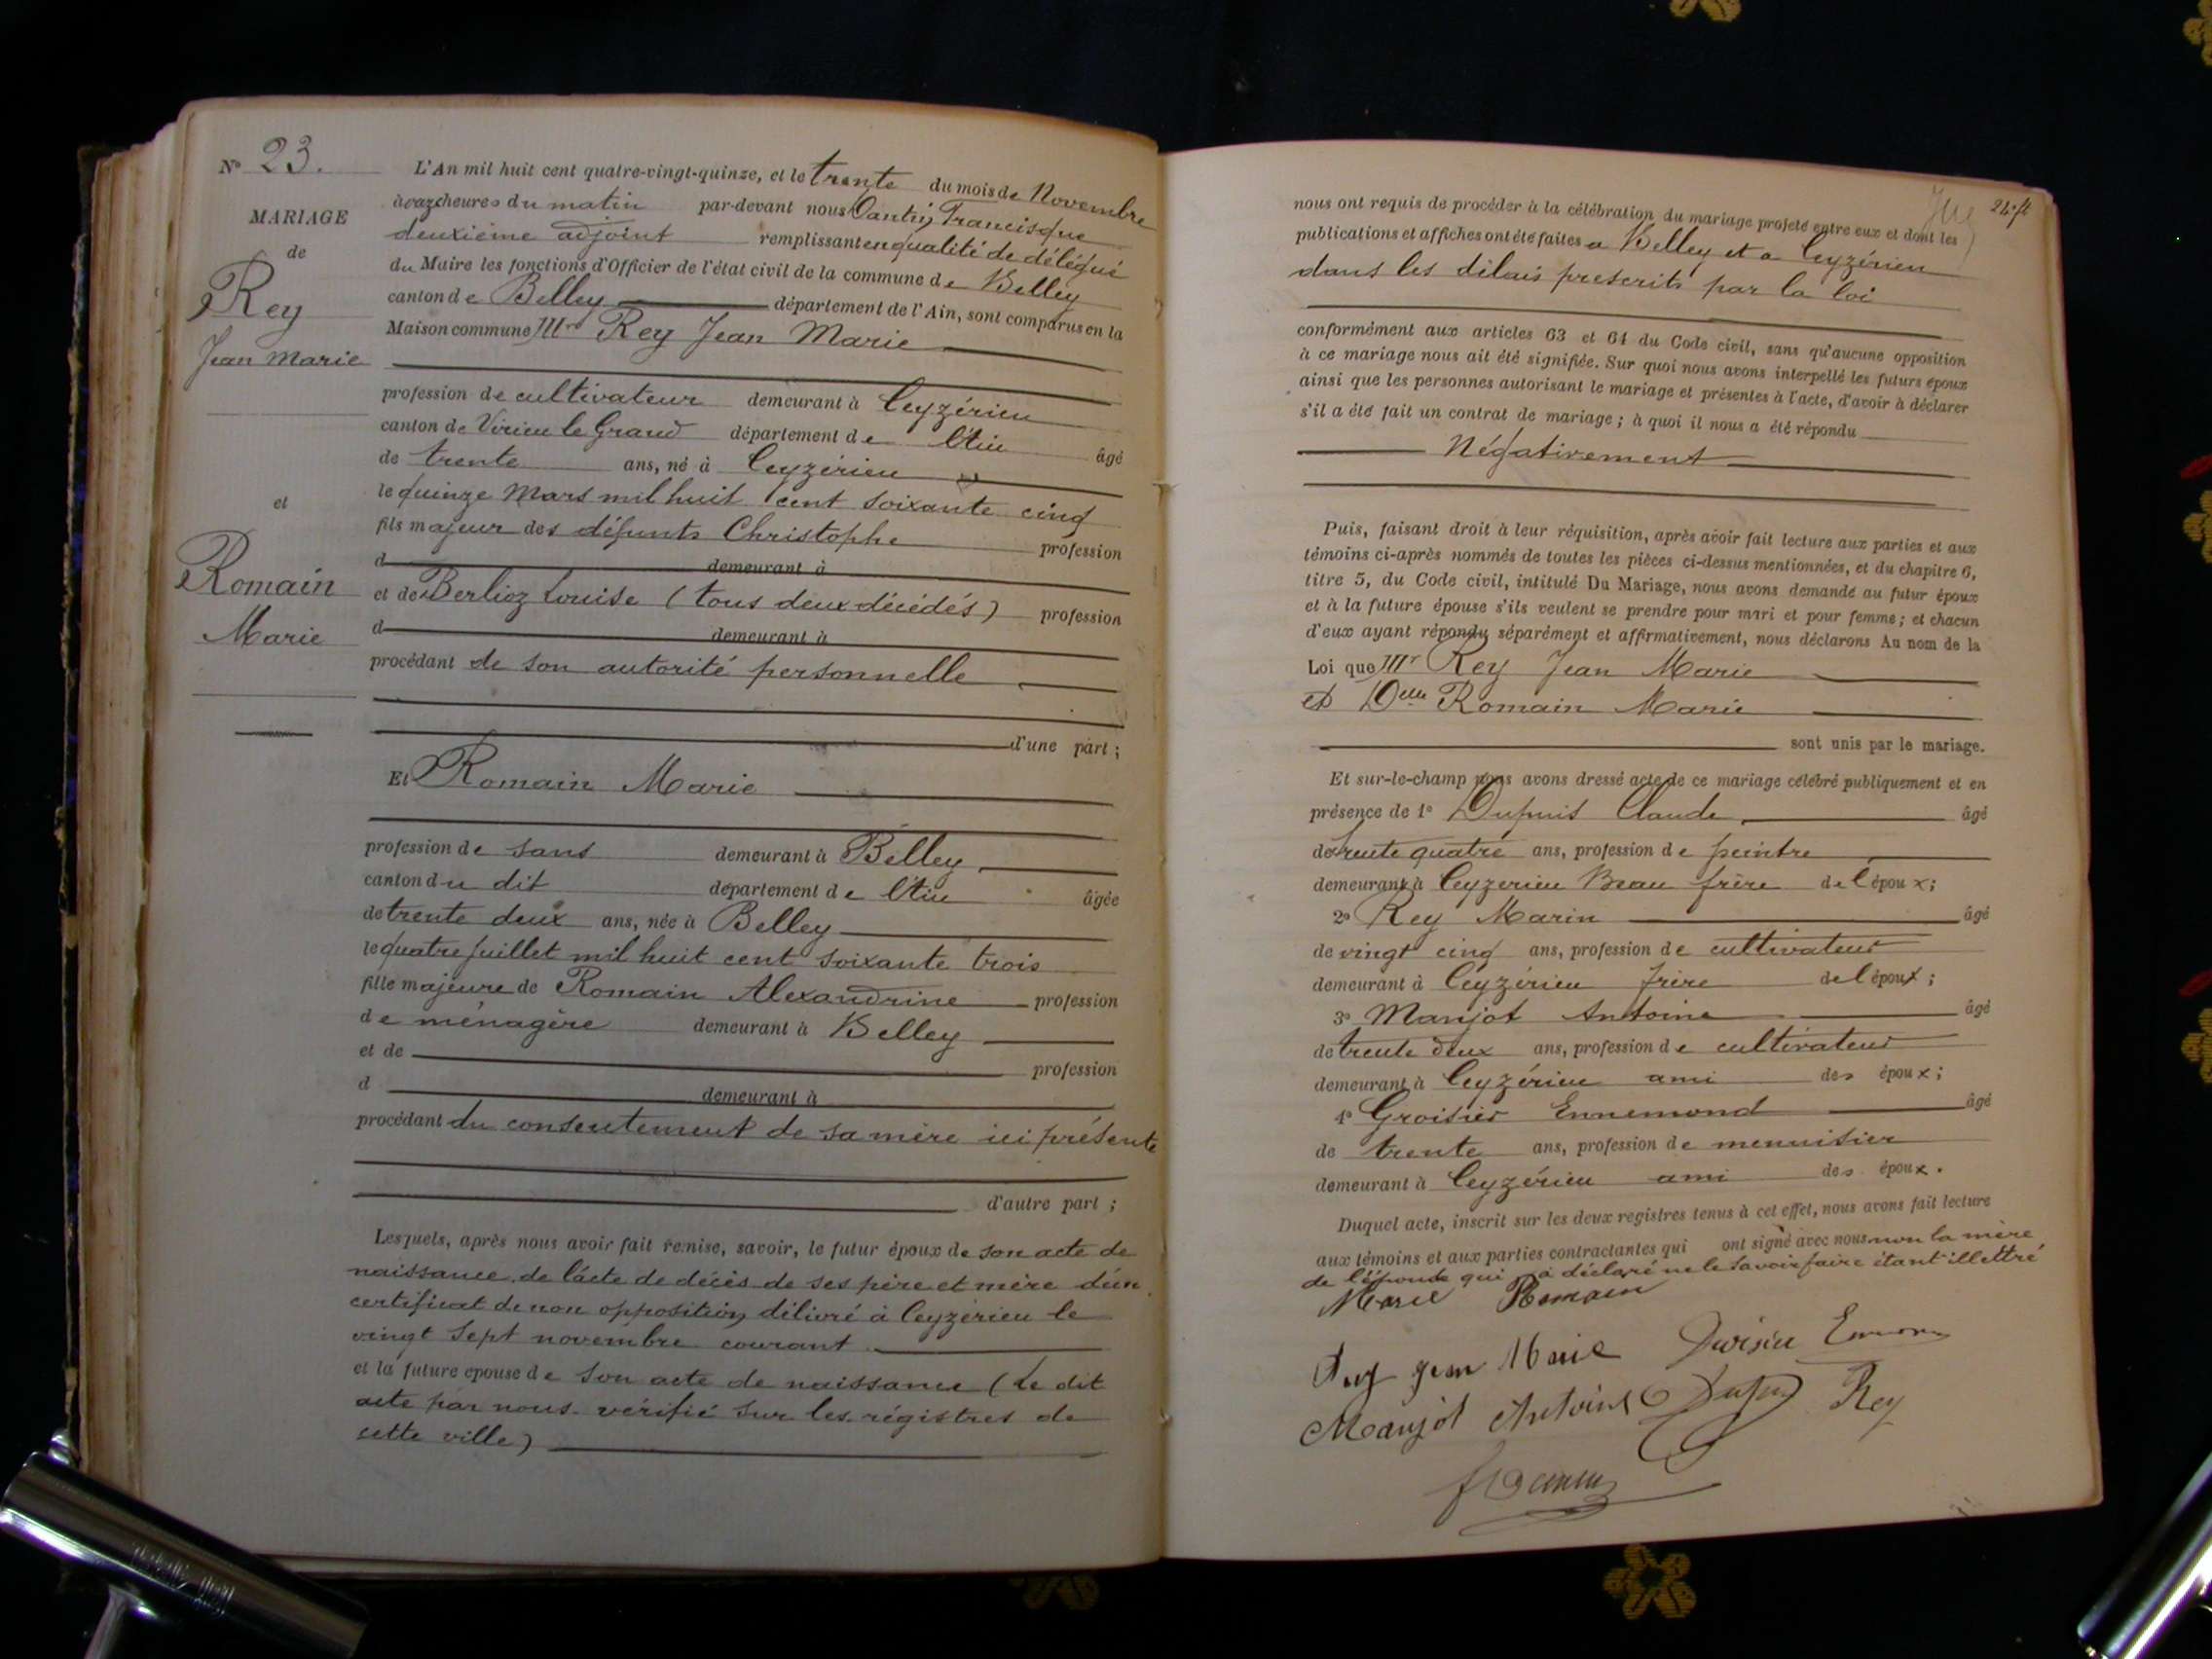 N° 23.
MARIAGE
de
Rey
Jean Marie
et
Romain
Marie
L'An mil huit cent quatre-vingt-quinze, et le trente du mois de Novembre
à onze heures du matin par-devant nous Francisque
deuxième adjoint remplissant en qualité de délégué
du Maire les fonctions d'Officier de l'état civil de la commune de Belley
canton de Belley département de l'Ain, sont comparus en la
Maison commune Mr Rey Jean Marie
profession de cultivateur demeurant à Ceyzérieu
canton de Virieu le Grand département de l'Ain âgé
de trente ans, né à Ceyzérieu
le quinze Mars mil huit cent soixante cinq
fils majeur des défunts Christophe profession
d demeurant à
et de Berlioz Louise (tous deux décédés) profession
d demeurant à
procédant de son autorité personnelle
d'une part;
Et Romain Marie
profession de sans demeurant à Belley
canton du dit département de l'Ain âgée
de trente deux ans, née à Belley
le quatre Juillet mil huit cent soixante trois
fille majeure de Romain Alexandrine profession
de ménagère demeurant à Belley
et de profession
d demeurant à
procédant du consentement de sa mère ici présente
d'autre part;
Lesquels, après nous avoir fait remise, savoir, le futur époux de son acte de
naissance, de l'acte de décès de ses père et mère d'un
certificat de non opposition délivré à Ceyzérieu le
vingt sept novembre courant
et la future épouse de son acte de naissance (Le dit
acte par nous vérifié sur les régistres de
cette ville)
24 ft
nous ont requis de procéder à la célébration du mariage projeté entre eux et dont les
publications et affiches ont été faites a Belley et a Ceyzérieu
dans les délais prescrits par la loi
conformément aux articles 63 et 64 du Code civil, sans qu'aucune opposition
à ce mariage nous ait été signifiée. Sur quoi nous avons interpellé les futurs époux
ainsi que les personnes autorisant le mariage et présentes à l'acte, d'avoir à déclarer
s'il a été fait un contrat de mariage; à quoi il nous a été répondu
Négativement
Puis, faisant droit à leur réquisition, après avoir fait lecture aux parties et aux
témoins ci-après nommés de toutes les pièces ci-dessus mentionnées, et du chapitre 6,
titre 5, du Code civil, intitulé Du Mariage, nous avons demandé au futur époux
et à la future épouse s'ils veulent se prendre pour mari et pour femme; et chacun
d'eux ayant répondu séparément et affirmativement, nous déclarons Au nom de la
Loi que Mr Rey Jean Marie
et Delle Romain Marie
sont unis par le mariage.
Et sur-le-champ nous avons dressé acte de ce mariage célébré publiquement et en
présence de 1° Dupuis Claude âgé
de trente quatre ans, profession de peintre
demeurant à Ceyzerieu Beau frère de l'époux;
2° Rey Marin âgé
de vingt cinq ans, profession de cultivateur
demeurant à Ceyzérieu frère de l'époux;
3° Manjot Antoine âgé
de trente deux ans, profession de cultivateur
demeurant à Ceyzérieu ami des époux;
4° Groisier Ennemond âgé
de trente ans, profession de menuisier
demeurant à Ceyzérieu ami des époux.
Duquel acte, inscrit sur les deux registres tenus à cet effet, nous avons fait lecture
aux témoins et aux parties contractantes qui ont signé avec nous non la mère
de l'épouse qui a déclaré ne le savoir faire étant illettré
Marie Romain
Rey Jean Marie
Manjot Antoine Rey